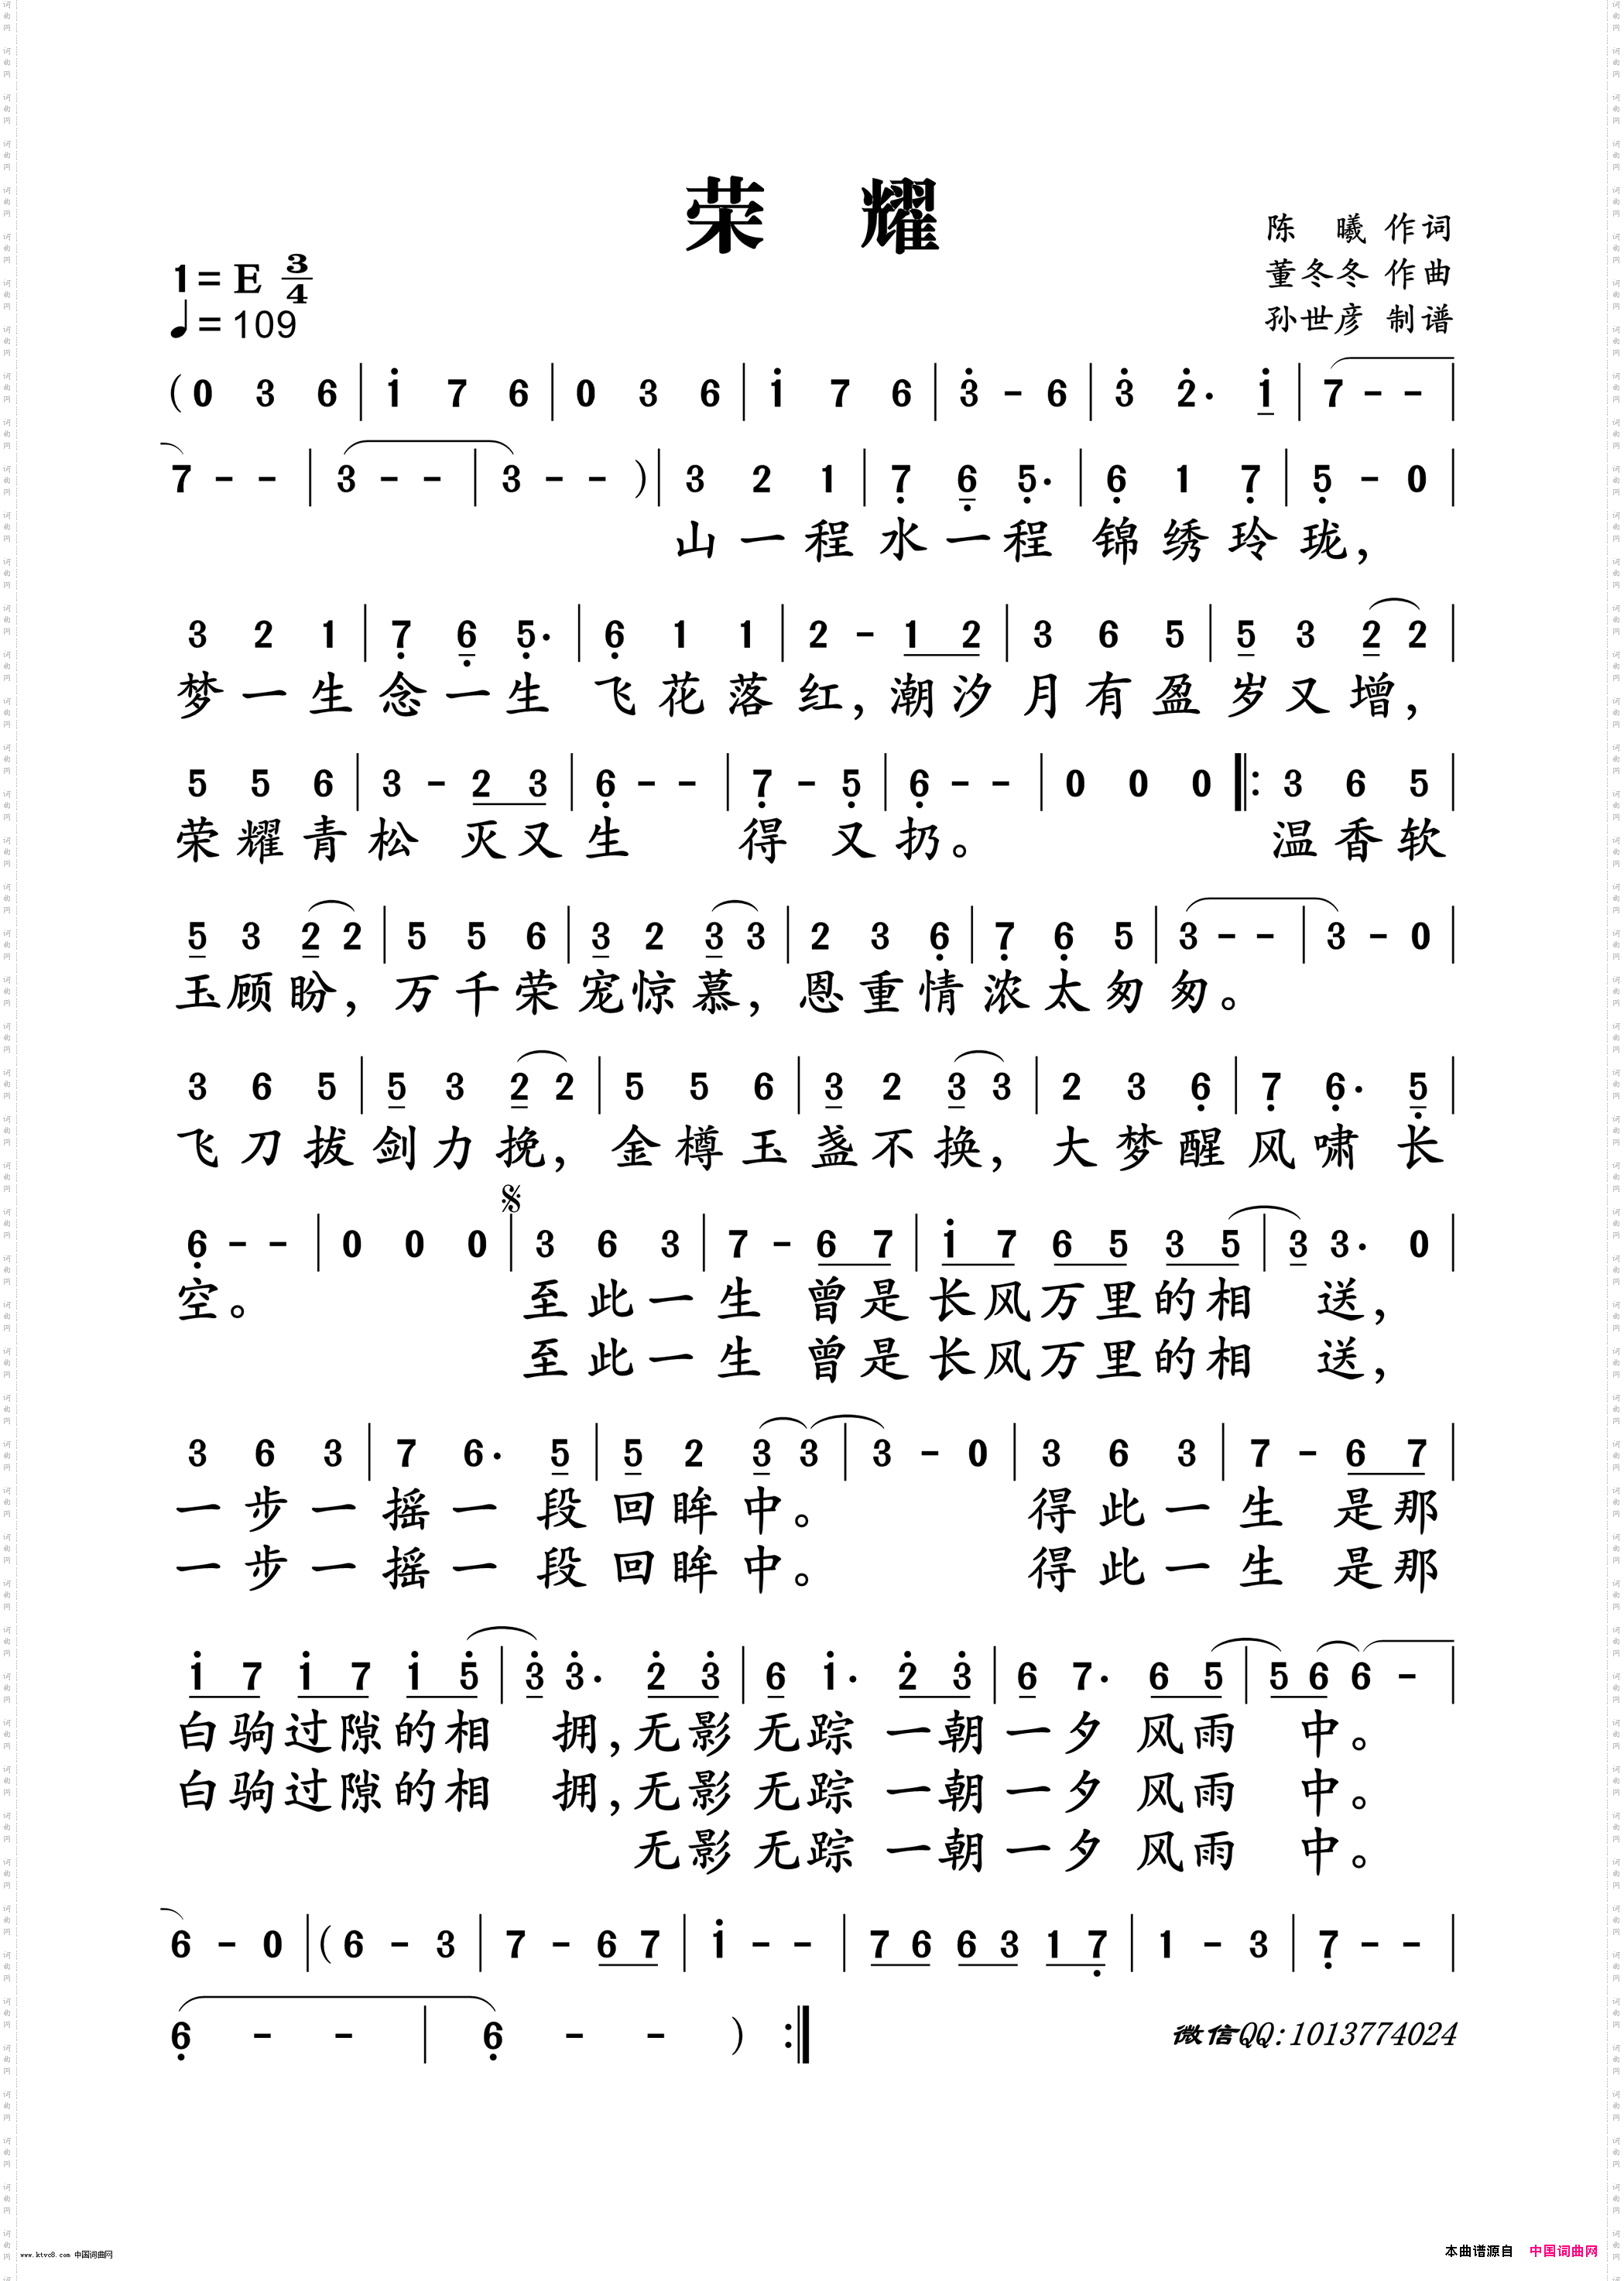 荣 耀
陈 曦 作词
董冬冬 作曲
孙世彦 制谱
1= E 3/4
♩= 109
( 0 3 6 | i 7 6 | 0 3 6 | i 7 6 | 3̇ - 6 | 3̇ 2̇. i | 7 - - |
7 - - | 3 - - | 3 - - ) | 3 2 1 | 7̣ 6̣ 5̣. | 6̣ 1 7̣ | 5̣ - 0 |
山一程水一程 锦绣玲珑,
3 2 1 | 7̣ 6̣ 5̣. | 6̣ 1 1 | 2 - 1 2 | 3 6 5 | 5 3 2 2 |
梦一生念一生 飞花落红,潮汐月有盈岁又增,
5 5 6 | 3 - 2 3 | 6̣ - - | 7̣ - 5̣ | 6̣ - - | 0 0 0 ‖: 3 6 5 |
荣耀青松 灭又生 得 又扔。 温香软
5 3 2 2 | 5 5 6 | 3 2 3 3 | 2 3 6̣ | 7̣ 6̣ 5 | 3 - - | 3 - 0 |
玉顾盼,万千荣宠惊慕,恩重情浓太匆匆。
3 6 5 | 5 3 2 2 | 5 5 6 | 3 2 3 3 | 2 3 6̣ | 7̣ 6̣. 5̣ |
飞刀拔剑力挽,金樽玉盏不换,大梦醒风啸长
6̣ - - | 0 0 0 | 3 6 3 | 7 - 6 7 | i 7 6 5 3 5 | 3 3. 0 |
空。 至此一生 曾是长风万里的相 送,
至此一生 曾是长风万里的相 送,
3 6 3 | 7 6. 5 | 5 2 3 3 | 3 - 0 | 3 6 3 | 7 - 6 7 |
一步一摇一段回眸中。 得此一生 是那
一步一摇一段回眸中。 得此一生 是那
i 7 i 7 i 5̇ | 3̇ 3̇. 2̇ 3̇ | 6 i. 2̇ 3̇ | 6 7. 6 5 | 5 6 6 - |
白驹过隙的相 拥,无影无踪一朝一夕风雨 中。
白驹过隙的相 拥,无影无踪一朝一夕风雨 中。
无影无踪一朝一夕风雨 中。
6 - 0 | ( 6 - 3 | 7 - 6 7 | i - - | 7 6 6 3 1 7̣ | 1 - 3 | 7̣ - - |
6̣ - - | 6̣ - - ) :‖
微信QQ:1013774024
www.ktvc8.com 中国词曲网
本曲谱源自 中国词曲网